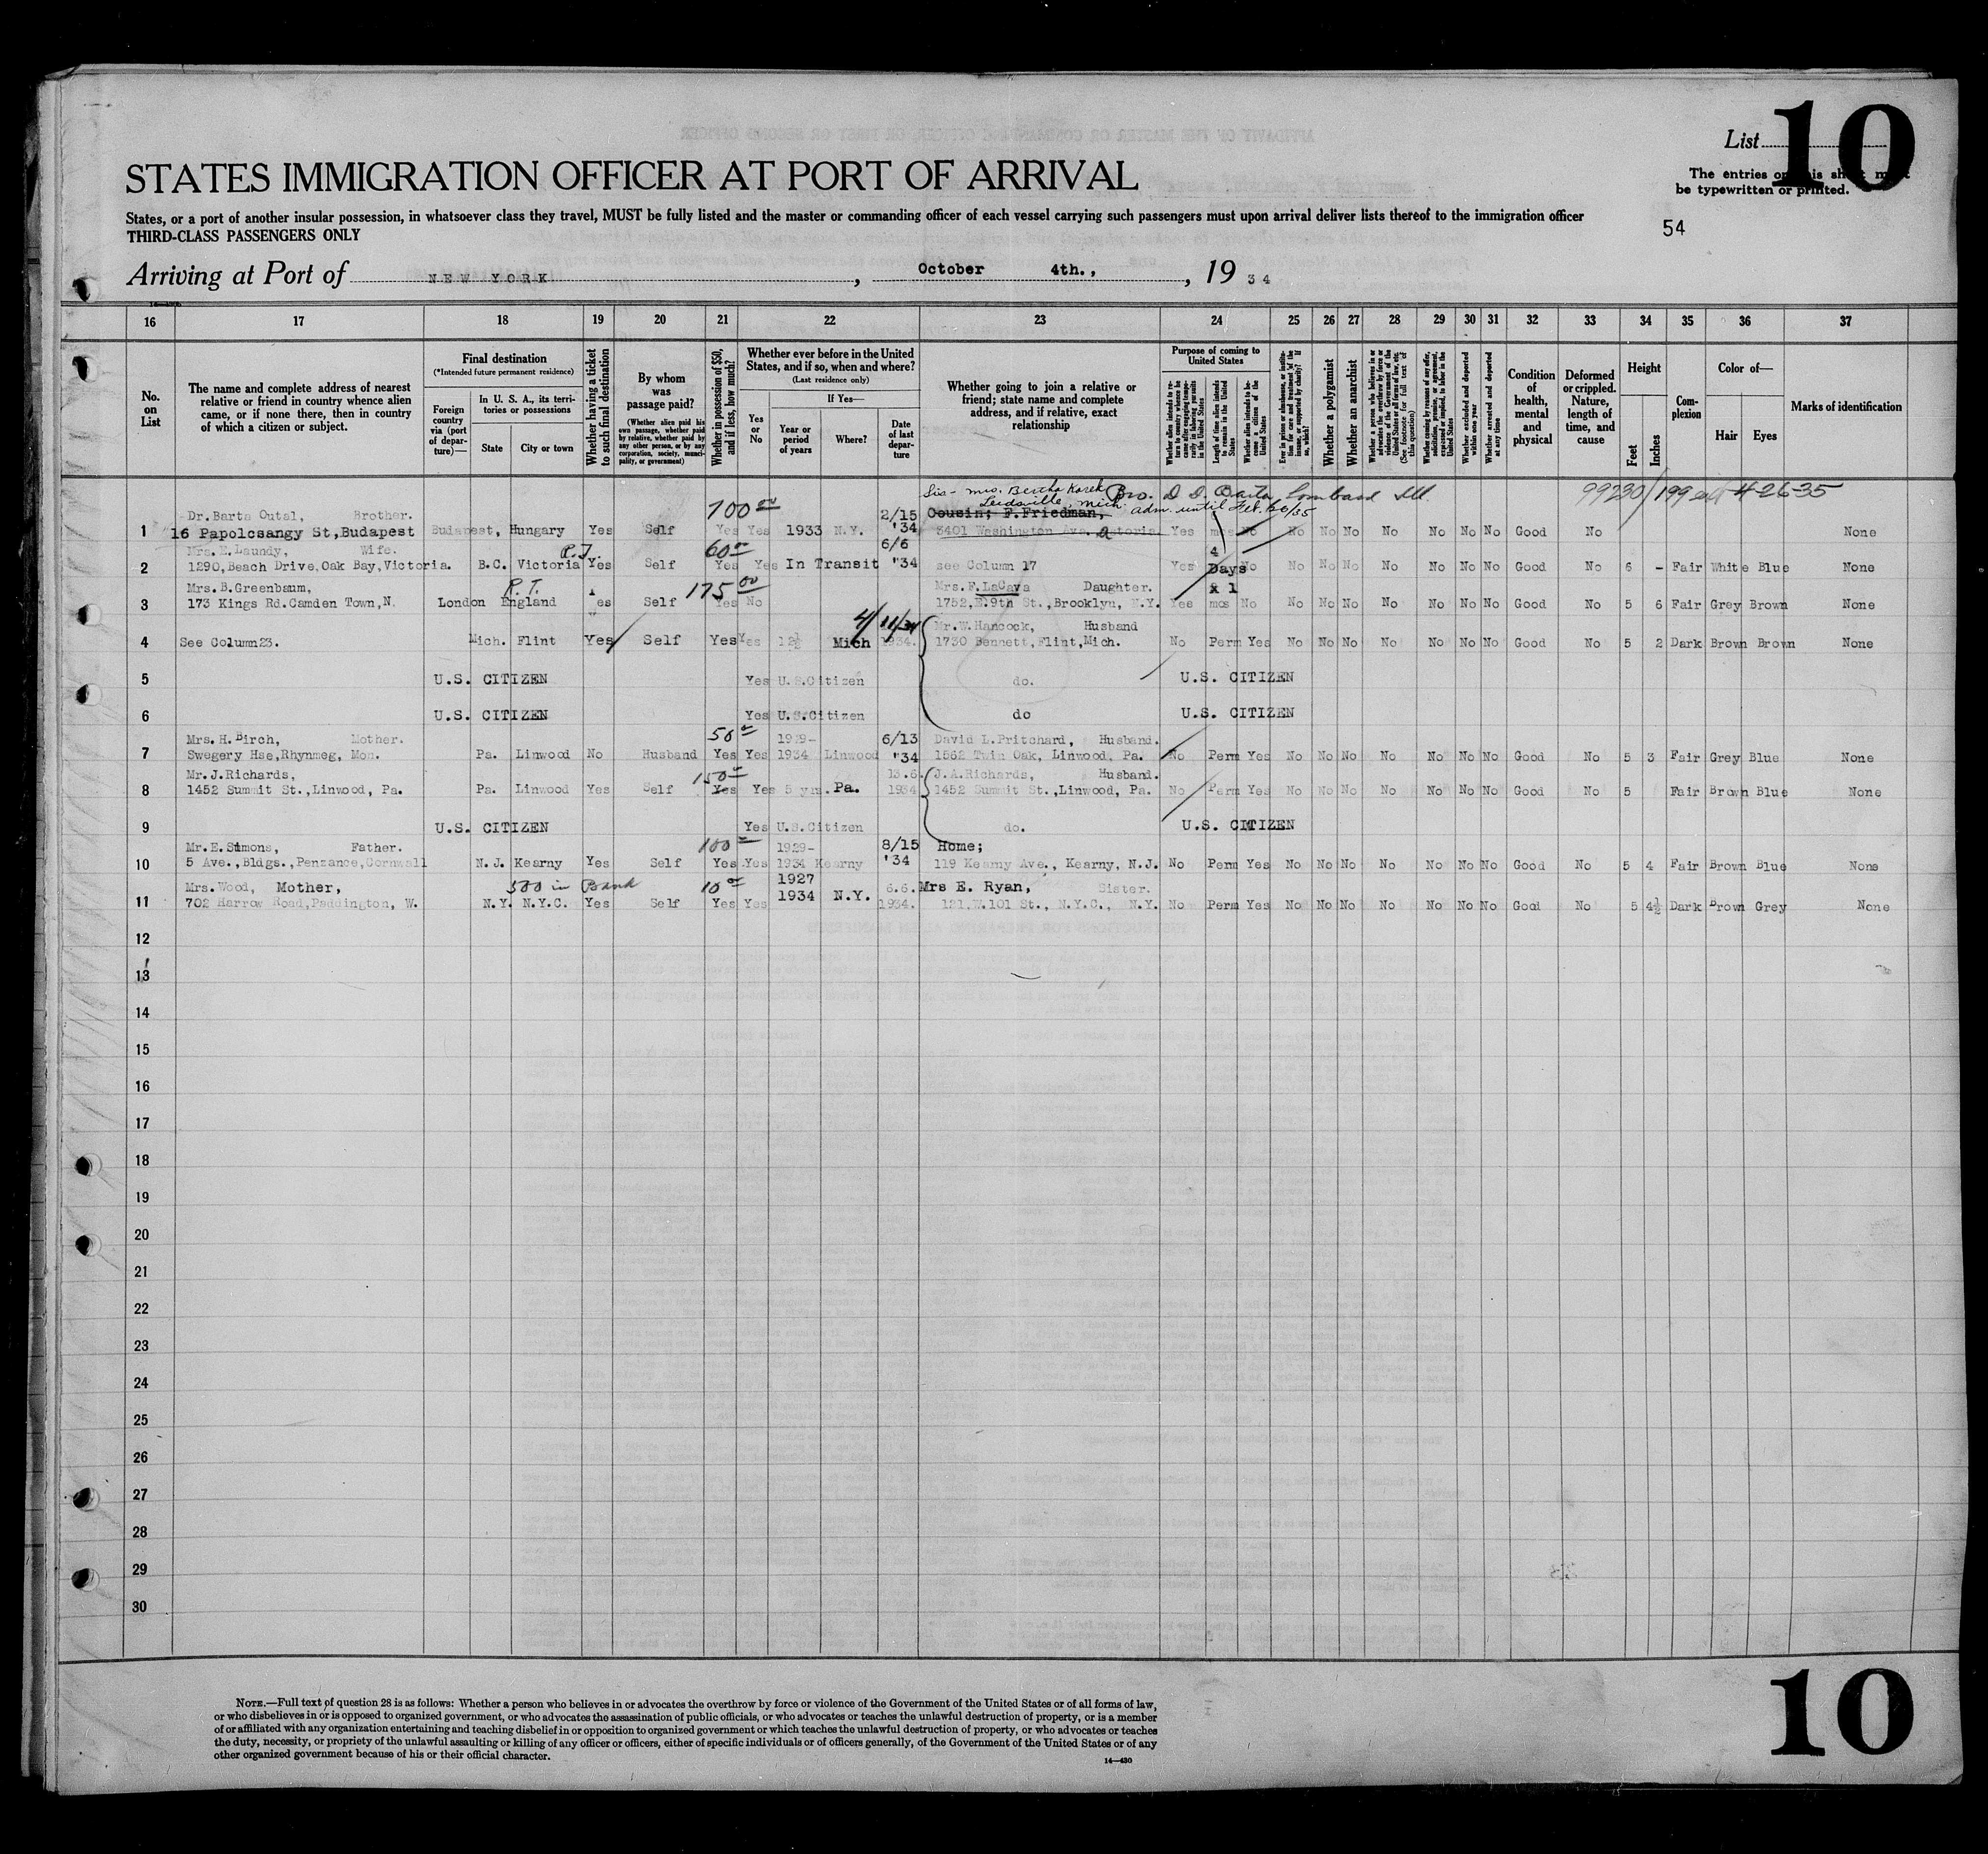 List
10
The entries on this sheet must
be typewritten or printed.
STATES IMMIGRATION OFFICER AT PORT OF ARRIVAL
States, or a port of another insular possession, in whatsoever class they travel, MUST be fully listed and the master or commanding officer of each vessel carrying such passengers must upon arrival deliver lists thereof to the immigration officer
THIRD-CLASS PASSENGERS ONLY
54
Arriving at Port of NEW YORK, October 4th., , 19 34
16 17 18 19 20 21 22 23 24 25 26 27 28 29 30 31 32 33 34 35 36 37
No. on List
The name and complete address of nearest relative or friend in country whence alien came, or if none there, then in country of which a citizen or subject.
Final destination
(*Intended future permanent residence)
Foreign country via (port of departure)—
In U. S. A., its territories or possessions
State
City or town
Whether having a ticket to such final destination
By whom was passage paid?
(Whether alien paid his own passage, whether paid by relative, whether paid by any other person, or by any corporation, society, municipality, or government)
Whether in possession of $50, and if less, how much?
Whether ever before in the United States, and if so, when and where?
(Last residence only)
Yes or No
If Yes—
Year or period of years
Where?
Date of last departure
Whether going to join a relative or friend; state name and complete address, and if relative, exact relationship
Purpose of coming to United States
Length of time alien intends to remain in the United States
Whether alien intends to become a citizen of the United States
Whether a polygamist
Whether an anarchist
(See footnote for full text of this question)
Whether excluded and deported within one year
Whether arrested and deported at any time
Condition of health, mental and physical
Deformed or crippled. Nature, length of time, and cause
Height
Feet
Inches
Complexion
Color of—
Hair
Eyes
Marks of identification
Sis- Mrs. Bertha Bro. D. D. Barta Lombard Ill. 99230/199 4-26-35
Mich. adm. until Feb.
Dr. Barta Outal, Brother. 700 00 2/15 Cousin; F.Friedman,
1 16 Papolcsangy St,Budapest Budapest, Hungary Yes Self Yes Yes 1933 N.Y. '34 3401 Washington Ave. Astoria Yes mos No No No No No No No No Good No None
Mrs. E.Laundy, Wife. R.T. 60 6/6 4
2 1290,Beach Drive,Oak Bay,Victoria. B.C. Victoria Yes Self Yes Yes In Transit '34 see Column 17 Yes Days No No No No No No No No Good No 6 - Fair White Blue None
Mrs. B.Greenbaum, R.T. 175 00 Mrs. F.LaCava Daughter. x 1
3 173 Kings Rd.Camden Town,N. London England Yes Self Yes No 1752,E.9th St.,Brooklyn, N.Y. Yes mos No No No No No No No No Good No 5 6 Fair Grey Brown None
4/11/34 Mr.W.Hancock, Husband
4 See Column23. Mich. Flint Yes Self Yes Yes 12½ Mich 1934. 1730 Bennett,Flint,Mich. No Perm Yes No No No No No No No Good No 5 2 Dark Brown Brown None
5 U.S. CITIZEN Yes U.S.Citizen do. U.S. CITIZEN
6 U.S. CITIZEN Yes U.S.Citizen do U.S. CITIZEN
Mrs. H. Birch, Mother. 50 1929- 6/13 David L.Pritchard, Husband.
7 Swegery Hse,Rhynmeg, Mon. Pa. Linwood No Husband Yes Yes 1934 Linwood '34 1562 Twin Oak, Linwood, Pa. No Perm Yes No No No No No No No Good No 5 3 Fair Grey Blue None
Mr. J.Richards, 150 13.6. J.A.Richards, Husband.
8 1452 Summit St.,Linwood, Pa. Pa. Linwood Yes Self Yes Yes 5 yrs. Pa. 1934 1452 Summit St.,Linwood, Pa. No Perm Yes No No No No No No No Good No 5 Fair Brown Blue None
9 U.S. CITIZEN Yes U.S.Citizen do. U.S. CITIZEN
Mr. E. Simons, Father. 100 1929- 8/15 Home;
10 5 Ave.,Bldgs.,Penzance,Cornwall N.J. Kearny Yes Self Yes Yes 1934 Kearny '34 119 Kearny Ave., Kearny, N.J. No Perm Yes No No No No No No No Good No 5 4 Fair Brown Blue None
Mrs. Wood, Mother, 500 in Bank 10 1927 6.6. Mrs E. Ryan, Sister.
11 702 Harrow Road,Paddington, W. N.Y. N.Y.C. Yes Self Yes Yes 1934 N.Y. 1934. 121,W.101 St., N.Y.C., N.Y. No Perm Yes No No No No No No No Good No 5 4½ Dark Brown Grey None
12
13
14
15
16
17
18
19
20
21
22
23
24
25
26
27
28
29
30
NOTE.—Full text of question 28 is as follows: Whether a person who believes in or advocates the overthrow by force or violence of the Government of the United States or of all forms of law,
or who disbelieves in or is opposed to organized government, or who advocates the assassination of public officials, or who advocates or teaches the unlawful destruction of property, or is a member
of or affiliated with any organization entertaining and teaching disbelief in or opposition to organized government or which teaches the unlawful destruction of property, or who advocates or teaches
the duty, necessity, or propriety of the unlawful assaulting or killing of any officer or officers, either of specific individuals or of officers generally, of the Government of the United States or of any
other organized government because of his or their official character.
14—430
10